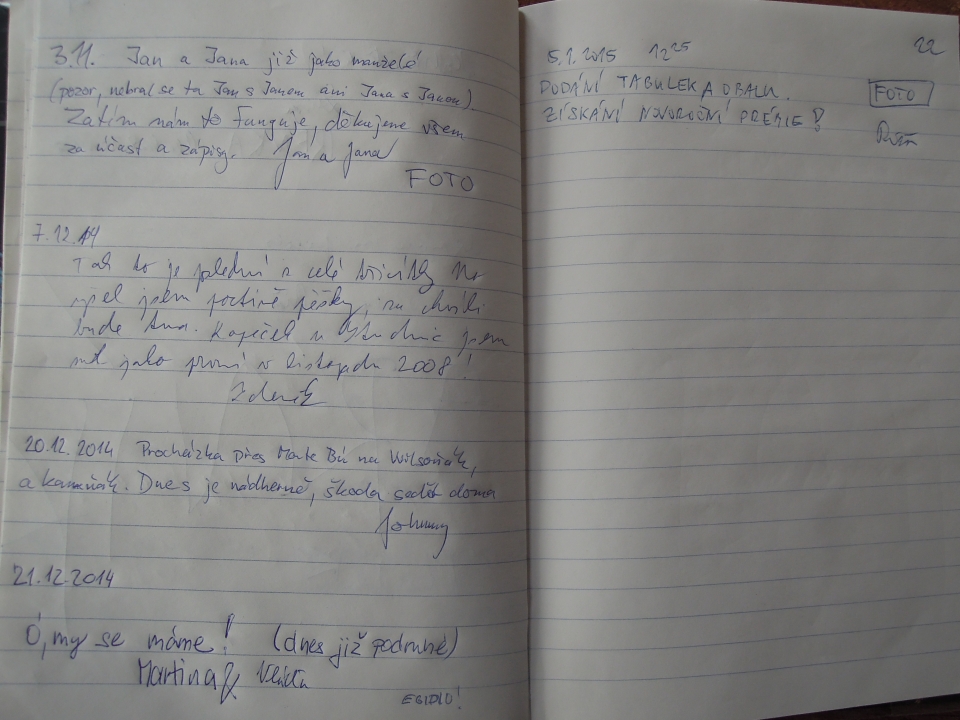 3.11. Jan a Jana již jako manželé
(pozor, nebral se tu Jan s Janem ani Jana s Janou).
Zatím nám to funguje, děkujeme všem
za účast a zápisy. Jan a Jana
FOTO
7.12.14
Tak to je poslední z celé
jsem poctivě pěšky, za chvíli
bude tma. Kopeček u Studnic jsem
měl jako první v listopadu 2008!
Zdeněk
20.12.2014 Procházka přes Monte Bú na Wilsoňák,
a kamzičák. Dnes je nádherně, škoda sedět doma
Johnny
21.12.2014
Ó, my se máme! (dnes již podruhé)
Martina &
EGIDIU!
22
5.1.2015 12 25
DODÁNÍ TABULEK A OBALU.
FOTO
ZÍSKÁNÍ NOVOROČNÍ PRÉMIE!